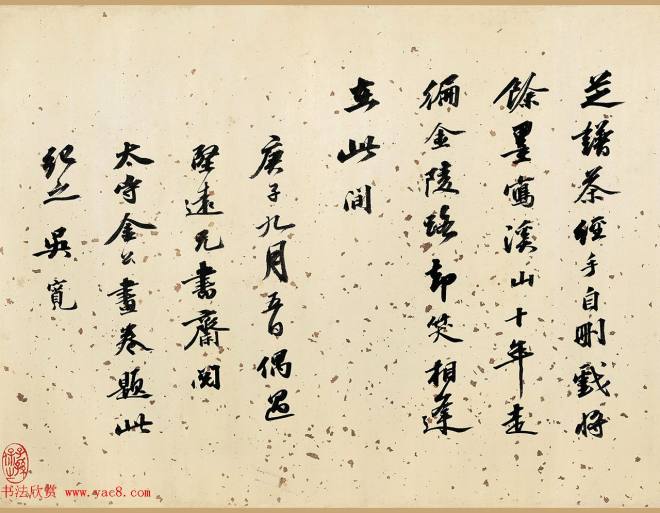 芝譜茶經手自刪戲將
餘墨寫溪山十年走
徧金陵路却笑相逢
在此間
庚子九月五日偶過
堅遠兄書齋閱
太守金公畫卷題此
紀之吳寬
书法欣赏 www.yac8.com